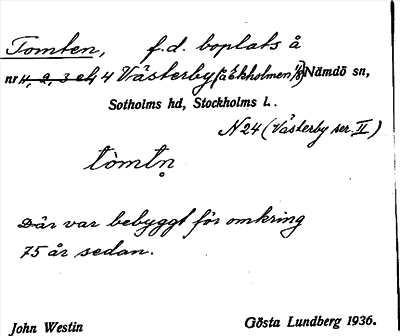 Tomten, f.d. boplats å
nr 1, 2, 3 och 4 Västerby (på Ekholmen 1/8) Nämdö sn,
Sotholms hd, Stockholms l..
N 24 (Västerby ser. II)
tòmtn̥
Där var bebyggt för omkring
75 år sedan.
John Westin Gösta Lundberg 1936.